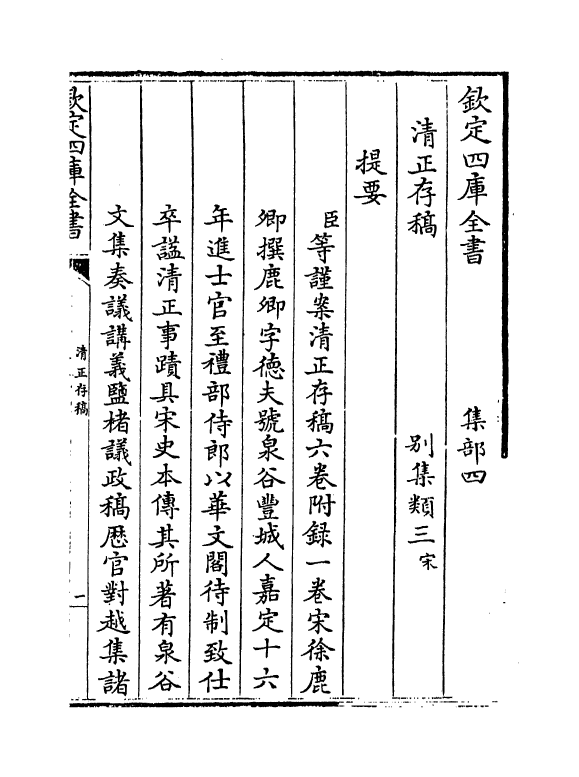 欽定四庫全書　集部四
清正存稿　別集類三宋
提要
臣等謹案清正存稿六卷附録一卷宋徐鹿
卿撰鹿卿字德夫號泉谷豐城人嘉定十六
年進士官至禮部侍郎以華文閣待制致仕
卒諡清正事蹟具宋史本傳其所著有泉谷
文集奏議講義鹽楮議政稿厯官對越集諸
欽定四庫全書
清正存稿
一